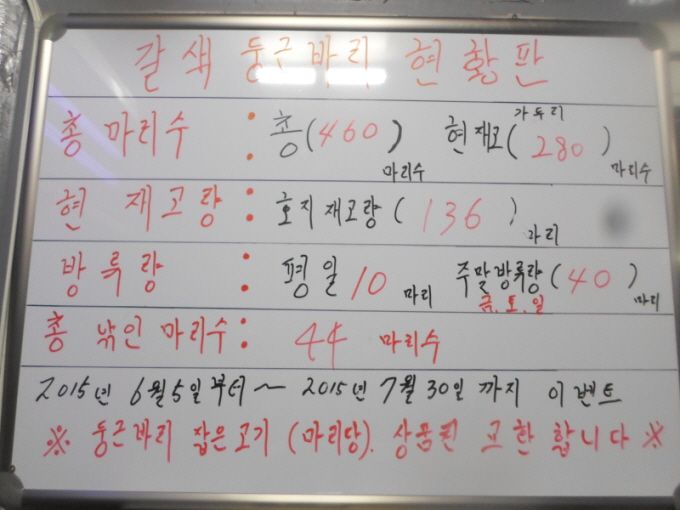 갈색 둥근바리 현황판
총 마리수 : 총(460)마리수 현재고(가두리 280)마리수
현 재고량 : 호지재고량 (136)마리
방류량 : 평일 10 마리 주말방류량(40)마리
금.토.일
총 낚인 마리수: 44 마리수
2015년 6월5일부터~ 2015년 7월 30일 까지 이벤트
※ 둥근바리 잡은고기 (마리당). 상품권 교환 합니다 ※